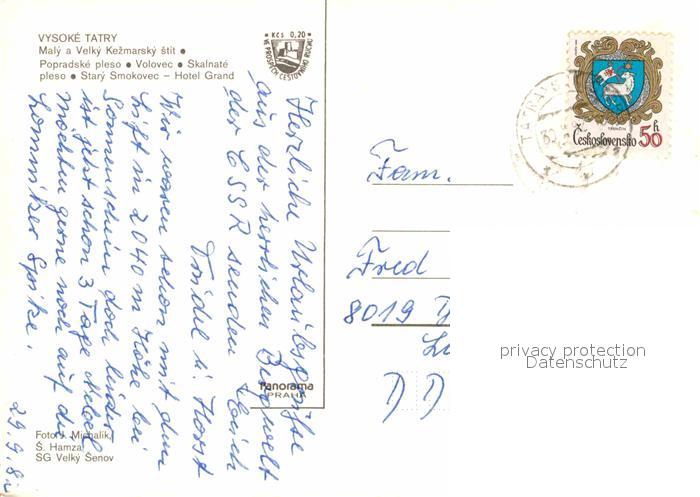 VYSOKÉ TATRY
Malý a Velký Kežmarský štít •
Popradské pleso • Volovec • Skalnaté
pleso • Starý Smokovec – Hotel Grand
• Kčs 0,20 •
VE PROSPĚCH CESTOVNÍHO RUCHU
Herzliche Urlaubsgrüße
aus der herrlichen Bergwelt
der CSSR senden Euch
Trudel u. Horst
Wir waren schon mit dem
Lift in 2040 m Höhe bei
Sonnenschein doch leider
ist jetzt schon 3 Tage Nebel
Möchten gerne noch auf die
Lomnitzer Spitze.
29.9.8
Foto J. Michalík,
Š. Hamza
SG Velký Šenov
Panorama
PRAHA
TRENČÍN
Československo 50 h
Fam.
Fred
8019
DD
privacy protection
Datenschutz